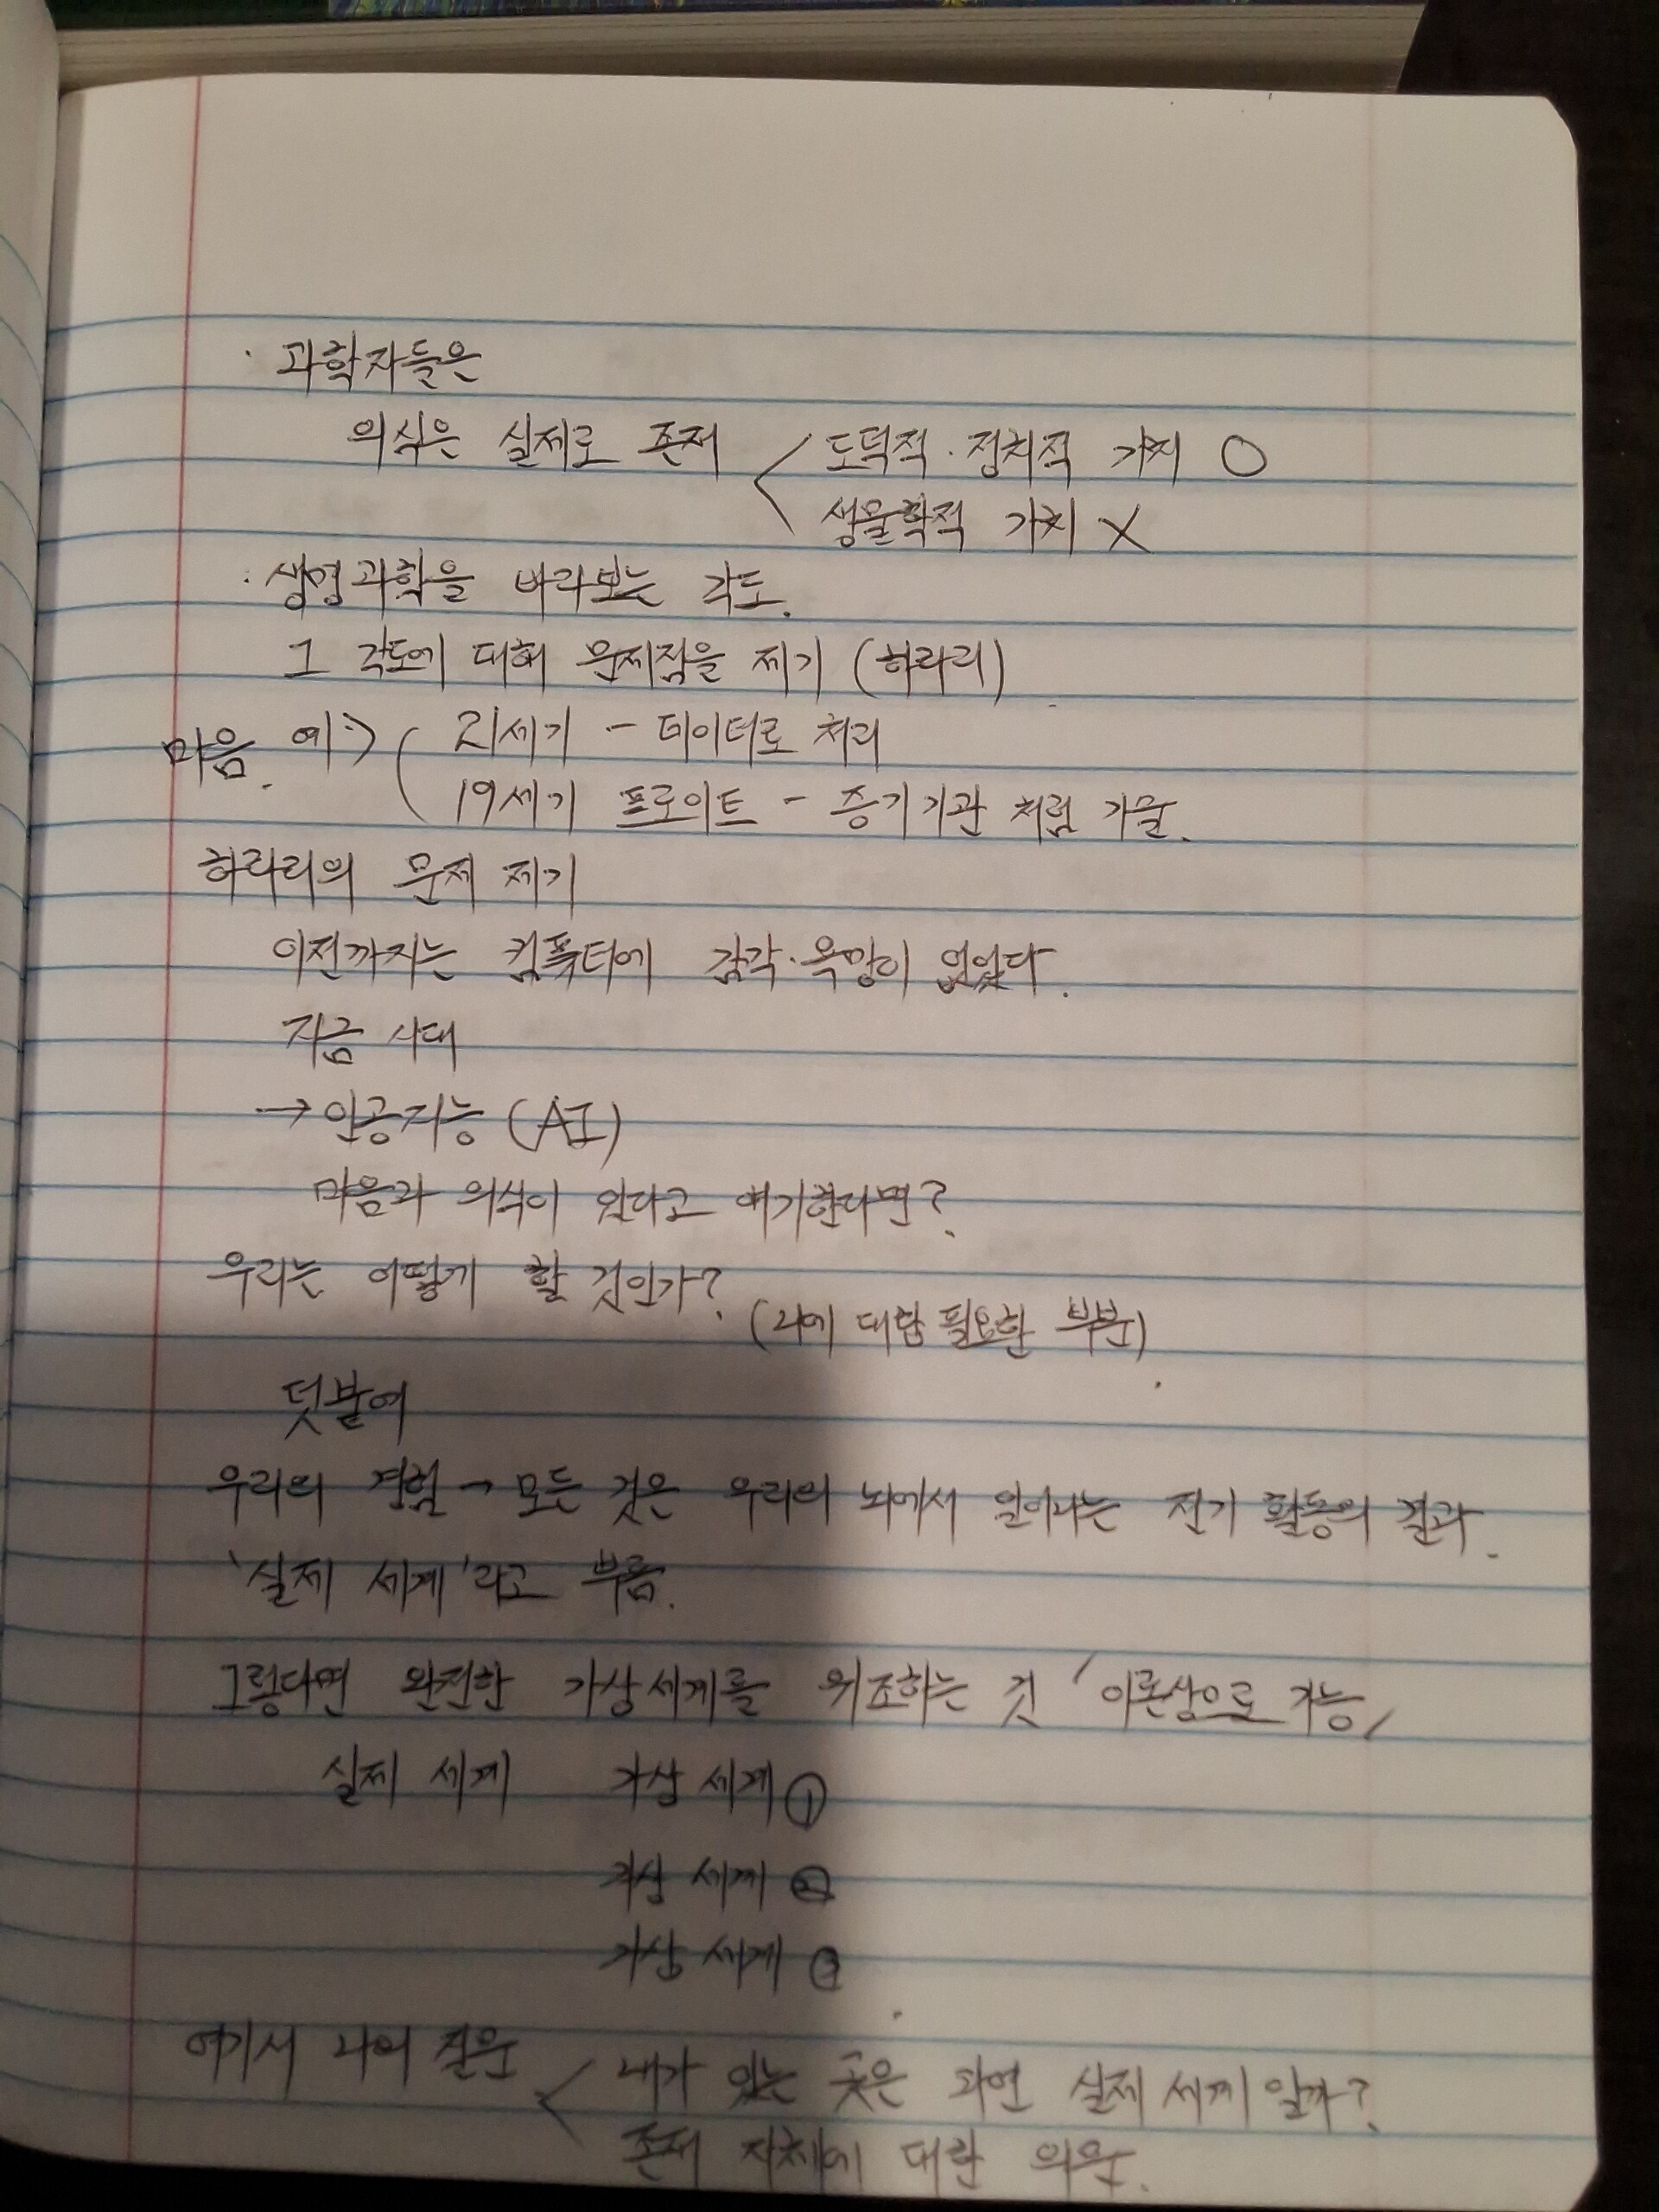 · 과학자들은
의식은 실제로 존재 < 도덕적·정치적 가치 O
생물학적 가치 X
: 생명과학을 바라보는 각도.
그 각도에 대해 문제점을 제기 (하라리)
마음. 예:> ( 21세기 - 데이터로 처리
19세기 프로이트 - 증기기관 처럼 가울.
하라리의 문제 제기
이전까지는 컴퓨터에 감각·욕망이 없었다.
지금 시대
→ 인공지능 (AI)
마음과 의식이 있다고 얘기한다면?
우리는 어떻게 할 것인가?
(나에 대답 필요한 부분)
덧붙여
우리의 경험 → 모든 것은 우리의 뇌에서 일어나는 전기 활동의 결과.
'실제 세계'라고 부름.
그렇다면 완전한 가상세계를 위조하는 것 '이론상으로 가능,
실제 세계 가상 세계 ①
가상 세계 ②
가상 세계 ③
여기서 나의 질문 < 내가 있는 곳은 과연 실제 세계 일까?
존재 자체에 대한 의문.